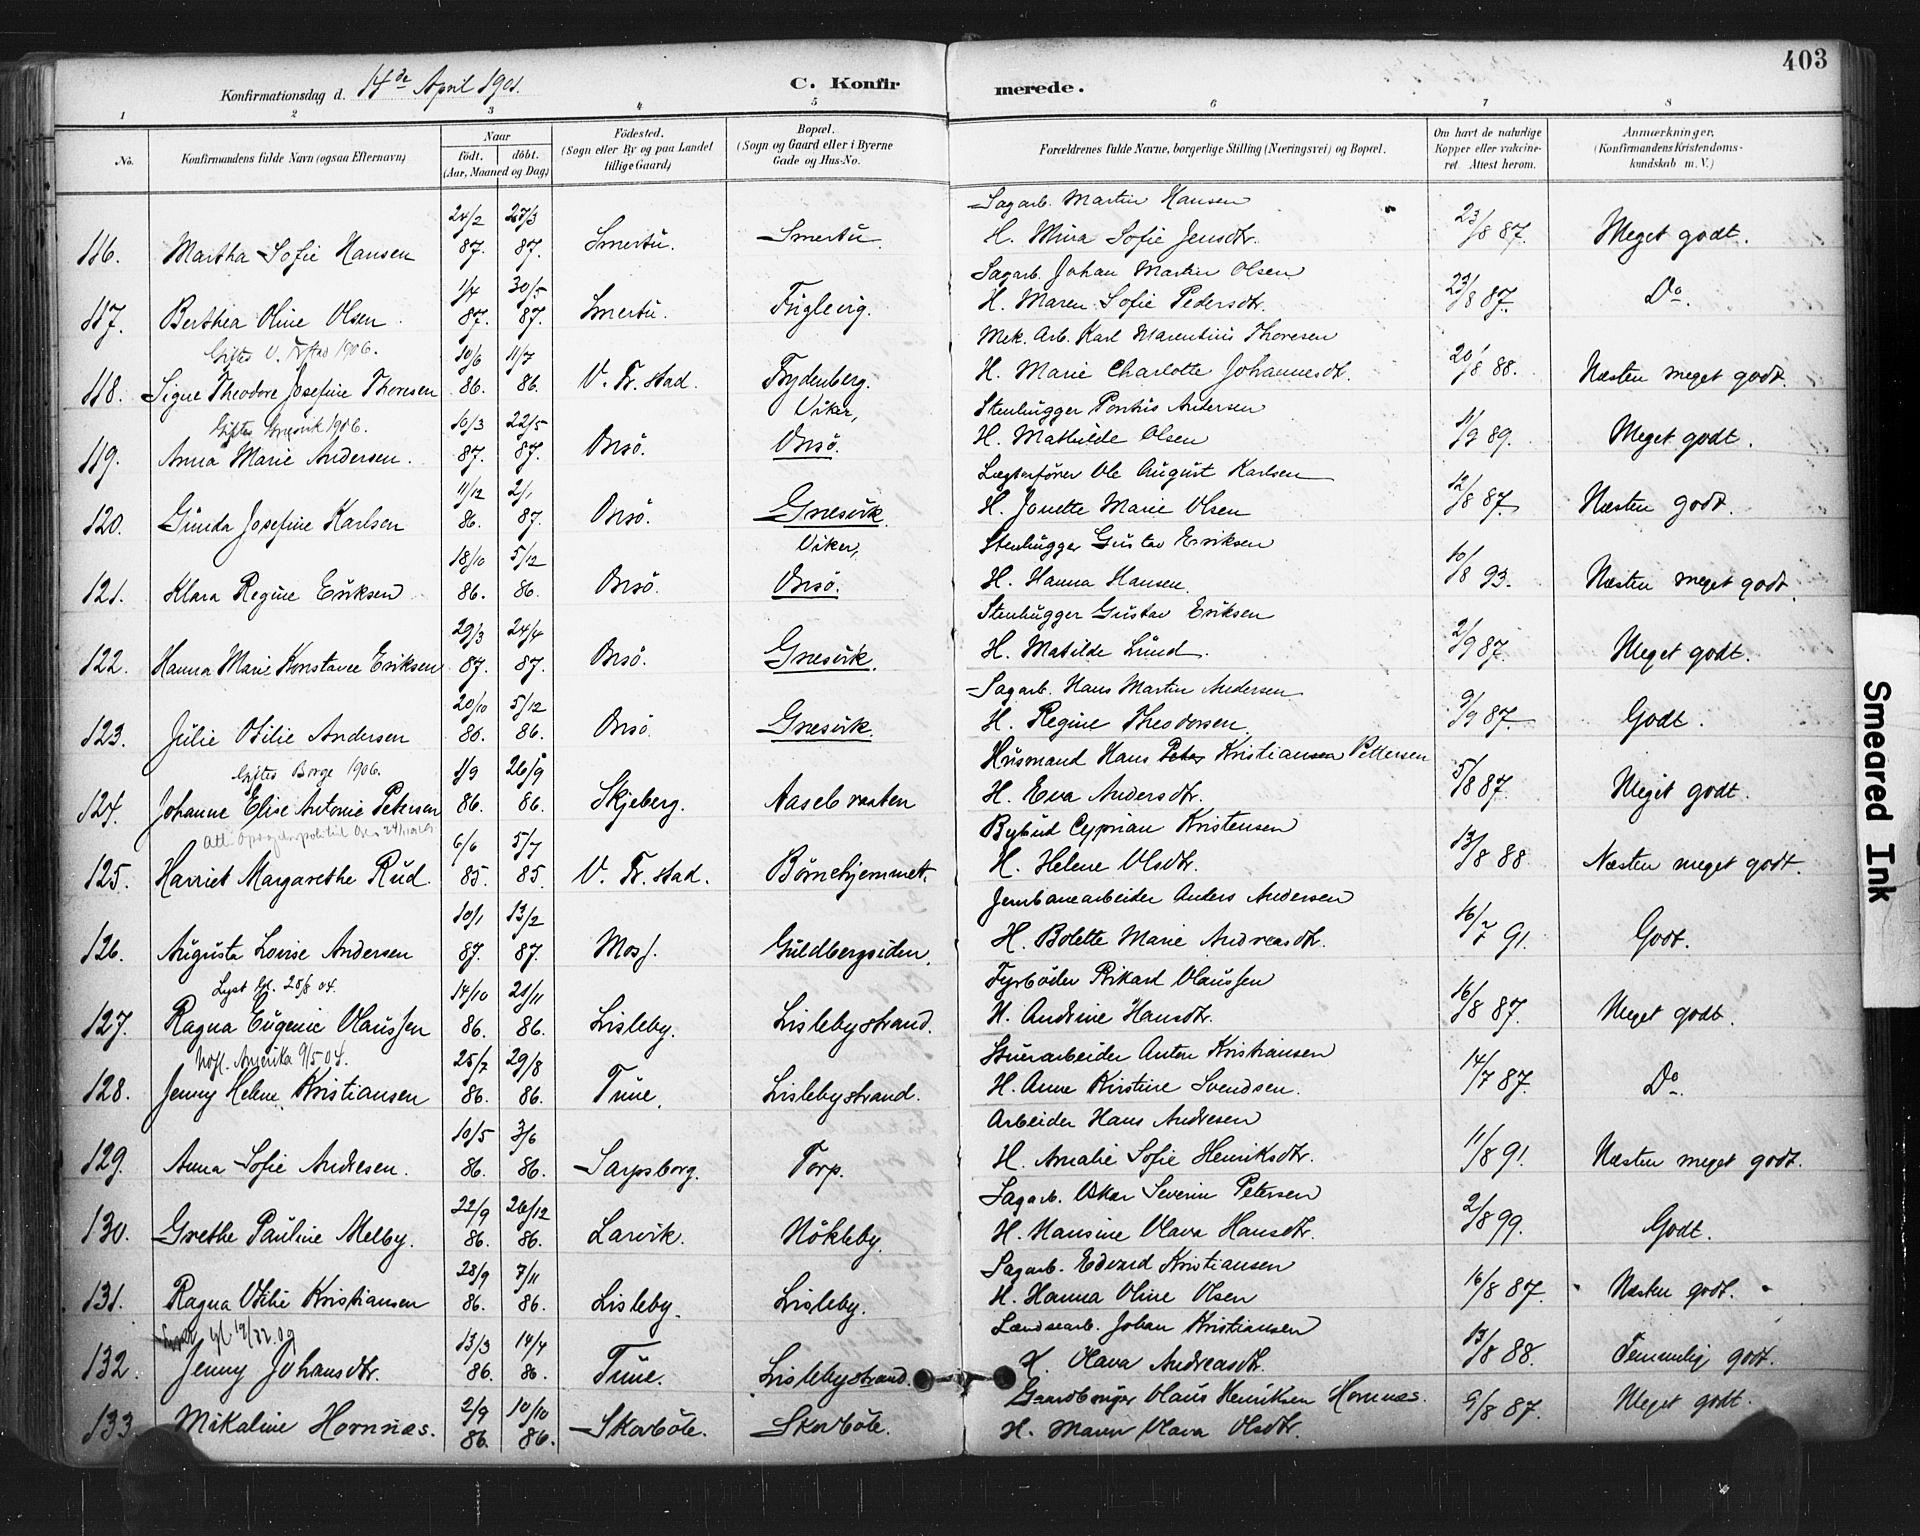 403
Konfirmationsdag d. 14de April 1901.
C. Konfirmerede.
1 2 3 4 5 6 7 8
No. | Konfirmandens fulde Navn (ogsaa Efternavn) | Naar födt. döbt. (Aar, Maaned og Dag) | Födested. (Sogn eller By og paa Landet tillige Gaard) | Bopæl. (Sogn og Gaard eller i Byerne Gade og Hus-No. | Forældrenes fulde Navne, borgerlige Stilling (Næringsvei) og Bopæl. | Om havt de naturlige Kopper eller vakcineret. Attest herom. | Anmærkninger, (Konfirmandens Kristendomskundskab m. V.)
24/2 27/3 Sagarb. Martin Hansen
116. Martha Sofie Hansen 87. 87. Smertu. Smertu. H. Mina Sofie Jensdtr. 23/8 87. Meget godt.
1/4 30/5 Sagarb. Johan Martin Olsen
117. Berthea Oline Olsen. 87. 87. Smertu. Fuglevig. H. Maren Sofie Pedersdtr. 23/8 87. Do.
Giftes V. Frstad 1906. 10/6 11/7 Mek. Arb. Karl Marentius Thoresen
118. Signe Theodore Josefine Thoresen 86. 86. V. Fr.stad. Frydenberg. H. Marie Charlotte Johannesdt. 20/8 88. Næsten meget godt.
Giftes Gresvik 1906. 10/3 22/5 Viker, Stenhugger Pontus Andersen
119. Anna Marie Andersen. 87. 87. Onsö. Onsö. H. Mathilde Olsen 11/9 89. Meget godt.
11/12 2/1 Lægterfører Ole August Karlsen
120. Gunda Josefine Karlsen 86. 87. Onsö. Gresvik. H. Jonette Marie Olsen 12/8 87. Næsten godt.
18/10 5/12 Viker, Stenhugger Gustav Eriksen
121. Klara Regine Eriksen 86. 86. Onsö. Onsö. H. Hanna Hansen. 10/8 93. Næsten meget godt.
29/3 24/4 Stenhugger Gustav Eriksen
122. Hanna Marie Konstance Eriksen 87. 87. Onsö. Gresvik. H. Matilde Lund. 2/9 87. Meget godt.
20/10 5/12 Sagarb. Hans Martin Andersen
123. Julie Otilie Andersen 86. 86. Onsö. Gresvik. H. Regine Theodorsen. 9/9 87. Godt.
Giftes Borge 1906. 1/9 26/9 Husmand Hans Peter Kristiansen Pettersen
124. Johanne Elise Antonie Petersen 86. 86. Skjeberg. Aasebraaten H. Eva Andersdtr. 5/8 87. Meget godt.
6/6 5/7 Bybud Cyprian Kristensen
125. Harriet Margarethe Rud. 85. 85. V. Fr.stad. Börnehjemmet. H. Helene Olsdtr. 13/8 88. Næsten meget godt.
10/1 13/2 Jernbanearbeider Anders Andersen
126. Augusta Lovise Andersen 87. 87. Moss. Guldbergsiden. H. Bolette Marie Andreasdtr. 16/7 91. Godt.
Lyst 28/8 04. 14/10 21/11 Fyrböder Rikard Olaussen
127. Ragna Eugenie Olaussen 86. 86. Lisleby. Lislebystrand. H. Andrine Hansdtr. 16/8 87. Meget godt.
Udfl. Amerika 9/5 04. 25/7 29/8 Stuerarbeider Anton Kristiansen
128. Jenny Helene Kristiansen 86. 86. Tune. Lislebystrand. H. Anne Kirstine Svendsen. 14/7 87. Do.
10/5 3/6 Arbeider Hans Andresen
129. Anna Sofie Andresen. 86. 86. Sarpsborg. Torp. H. Amalie Sofie Henriksdtr. 11/8 91. Næsten meget godt.
22/9 26/12 Sagarb. Oskar Severin Petersen
130. Grethe Pauline Melby. 86. 86. Larvik. Nökleby. H. Hansine Olava Hansdtr. 2/8 99. Godt.
28/9 7/11 Sagarb. Edvard Kristiansen
131. Ragna Otilie Kristiansen 86. 86. Lisleby. Lisleby. H. Hanna Oline Olsen 16/8 87. Næsten godt.
13/3 14/4 Lændsearb. Johan Kristiansen
132. Jenny Johansdtr. 86. 86. Tune. Lislebystrand. H. Olava Andreasdtr. 13/8 88. Temmelig godt.
2/9 10/10 Gaardbruger Olaus Henriksen Hornnæs.
133 Mikaline Hornnæs. 86. 86. Skovböle. Skovböle. H. Maren Olava Olsdtr. 9/8 87. Meget godt.
Smeared Ink